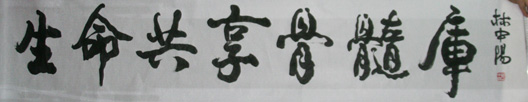 生命共享骨髓庫
林中陽